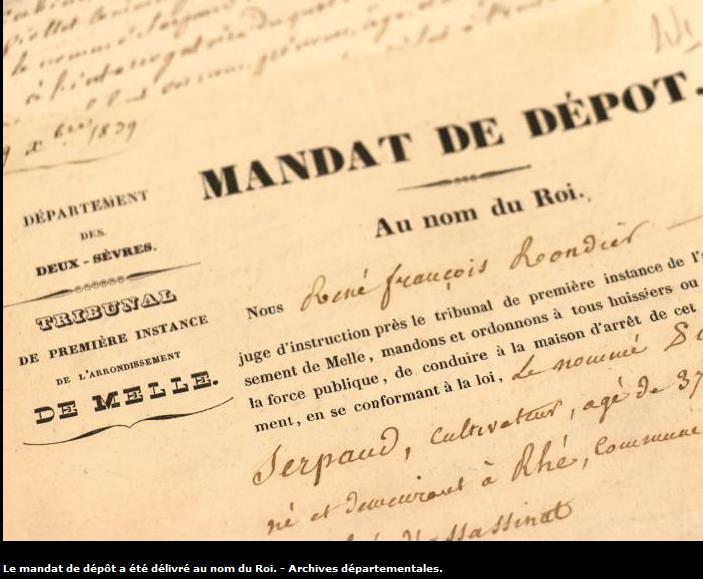 à l'interrogatoire du
9 x bre 1839
MANDAT DE DÉPOT.
Au nom du Roi.
DÉPARTEMENT
DES
DEUX-SÈVRES.
TRIBUNAL
DE PREMIÈRE INSTANCE
DE L'ARRONDISSEMENT
DE MELLE.
Nous René françois Rondier
juge d'instruction près le tribunal de première instance de l'
sement de Melle, mandons et ordonnons à tous huissiers ou
la force publique, de conduire à la maison d'arrêt de cet
ment, en se conformant à la loi, Le nommé
Serpaud, cultivateur, agé de 37
né et demeurant à Rhé, commune
d'assassinat
Le mandat de dépôt a été délivré au nom du Roi. - Archives départementales.